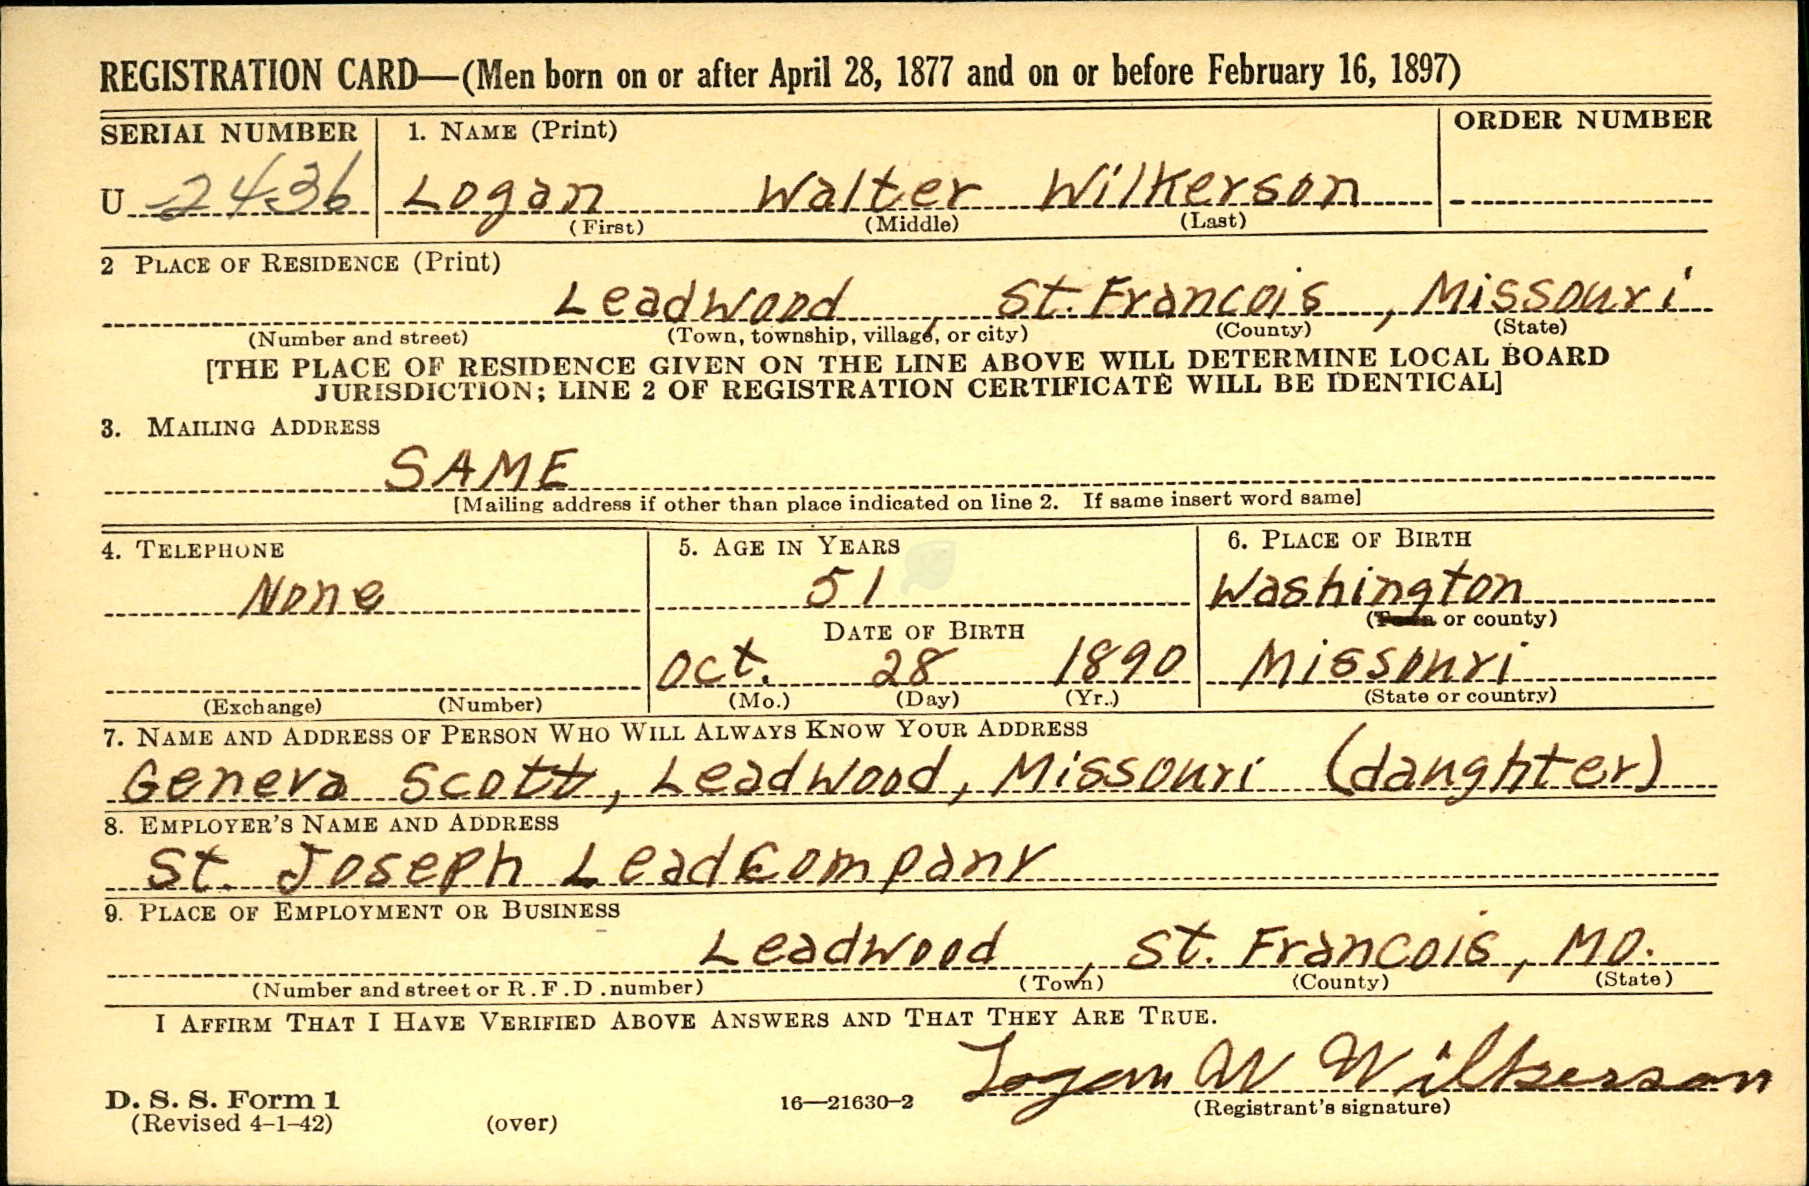 REGISTRATION CARD—(Men born on or after April 28, 1877 and on or before February 16, 1897)
SERIAL NUMBER 1. NAME (Print) ORDER NUMBER
U 2436 Logan Walter Wilkerson
(First) (Middle) (Last)
2 PLACE OF RESIDENCE (Print)
Leadwood, St. Francois, Missouri
(Number and street) (Town, township, village, or city) (County) (State)
[THE PLACE OF RESIDENCE GIVEN ON THE LINE ABOVE WILL DETERMINE LOCAL BOARD
JURISDICTION; LINE 2 OF REGISTRATION CERTIFICATE WILL BE IDENTICAL]
3. MAILING ADDRESS
SAME
[Mailing address if other than place indicated on line 2. If same insert word same]
4. TELEPHONE 5. AGE IN YEARS 6. PLACE OF BIRTH
None 51 Washington
(Town or county)
DATE OF BIRTH
Oct. 28 1890 Missouri
(Exchange) (Number) (Mo.) (Day) (Yr.) (State or country)
7. NAME AND ADDRESS OF PERSON WHO WILL ALWAYS KNOW YOUR ADDRESS
Geneva Scott, Leadwood, Missouri (daughter)
8. EMPLOYER'S NAME AND ADDRESS
St. Joseph Lead Company
9. PLACE OF EMPLOYMENT OR BUSINESS
Leadwood, St. Francois, Mo.
(Number and street or R.F.D. number) (Town) (County) (State)
I AFFIRM THAT I HAVE VERIFIED ABOVE ANSWERS AND THAT THEY ARE TRUE.
Logan W Wilkerson
D. S. S. Form 1 16—21630-2 (Registrant's signature)
(Revised 4-1-42) (over)